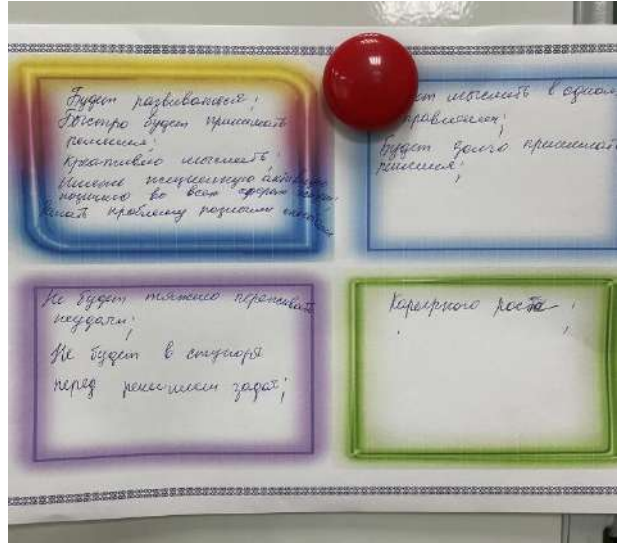 Будет развиваться;
Быстро будет принимать
решения;
Креативно мыслить;
Иметь жизненную активную
позицию во всех сферах жизни;
Решать проблему разными способами
мыслить в одном
Будет долго принимать
решения;
Не будет тяжело переживать
неудачи;
Не будет в ступоре
перед решением задач;
Карьерного роста ;